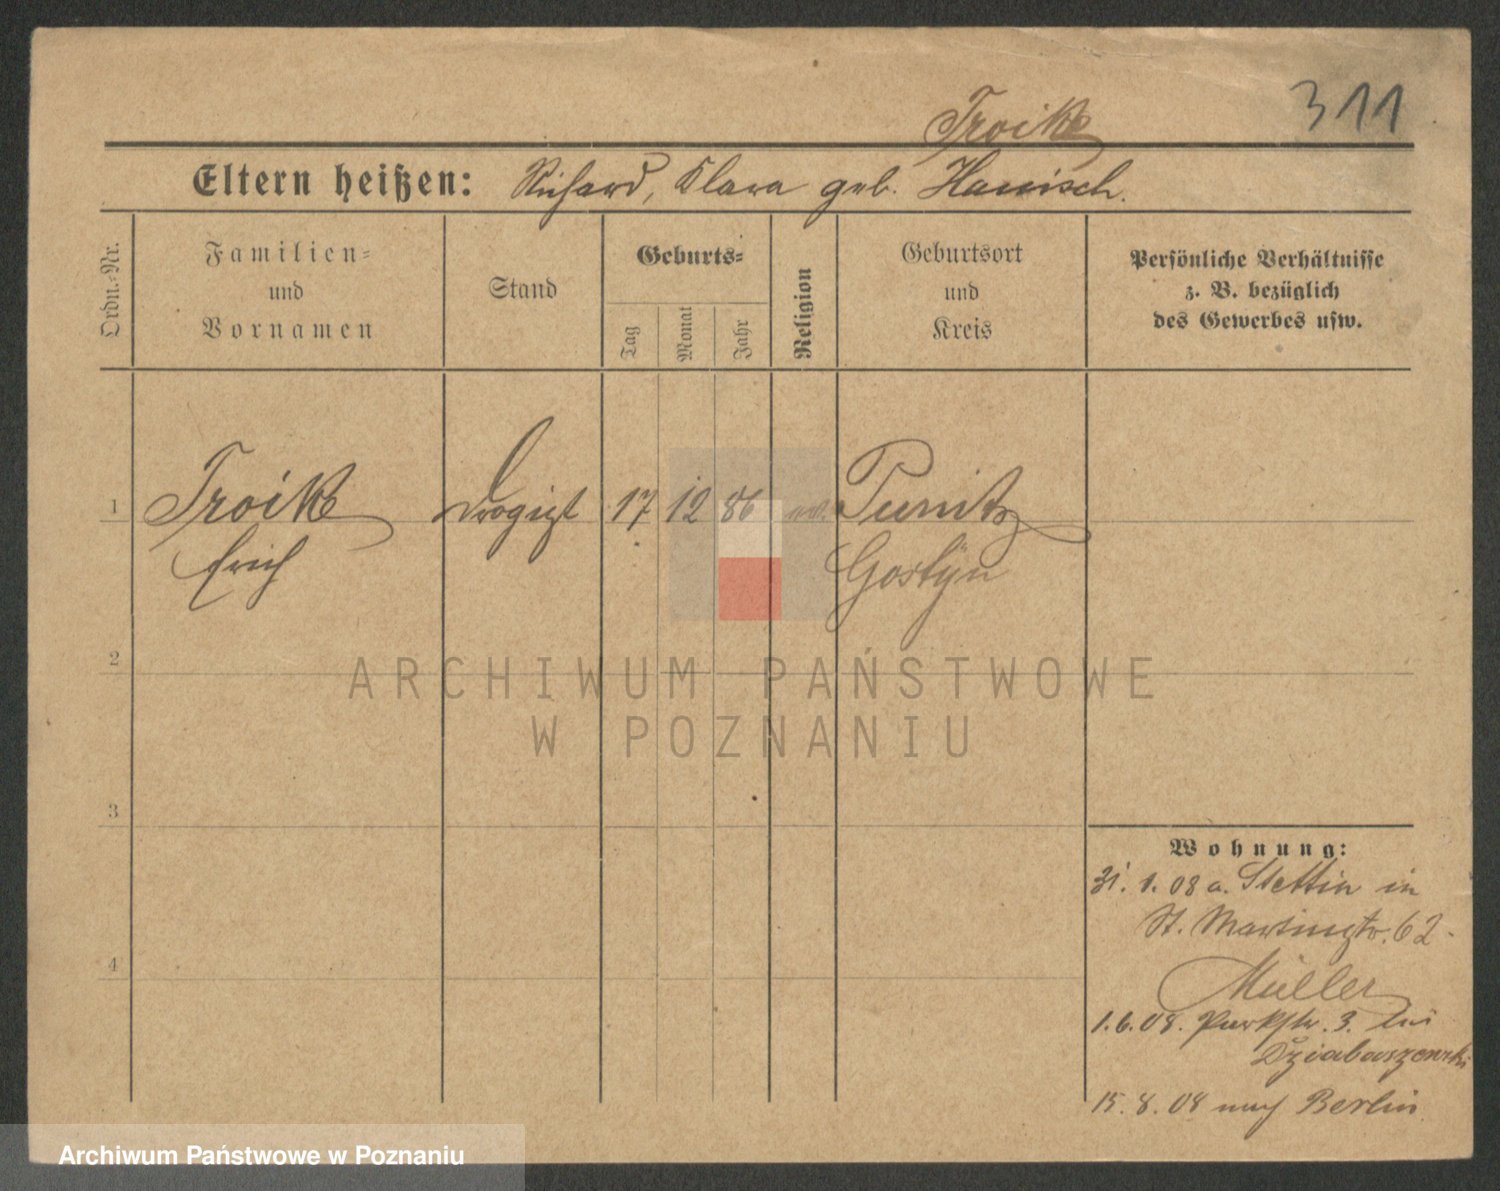 Troike
311
Eltern heißen: Richard, Klara geb. Hanisch.
Ordn.-Nr.
Familien-
und
Vornamen
Stand
Geburts-
Tag
Monat
Jahr
Religion
Geburtsort
und
Kreis
Persönliche Verhältnisse
z. B. bezüglich
des Gewerbes usw.
1 Troike Drogist 17 12 86 ev. Punitz
Erich Gostyn
2
3
4
Wohnung:
31. 1. 08 a. Stettin in
St. Martinstr. 62
Müller
1.6.08. Parkstr. 3. bei
Dziabaszewski
15. 8. 08 nach Berlin
ARCHIWUM PAŃSTWOWE
W POZNANIU
Archiwum Państwowe w Poznaniu